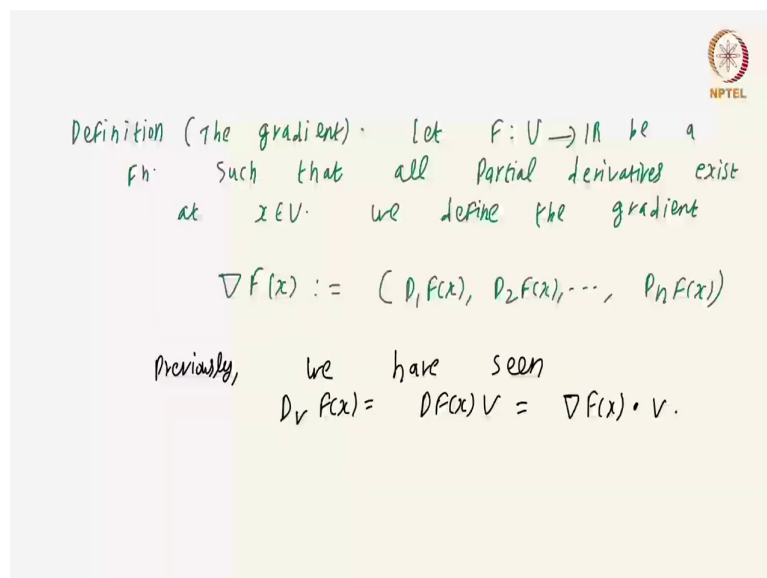 NPTEL
Definition (The gradient). Let F: U → ℝ be a
Fn. Such that all Partial derivatives exist
at x ∈ U. We define the gradient
∇F(x) := (D₁F(x), D₂F(x), ..., DₙF(x))
Previously, we have seen
Dᵥ F(x) = DF(x) V = ∇F(x) · V.